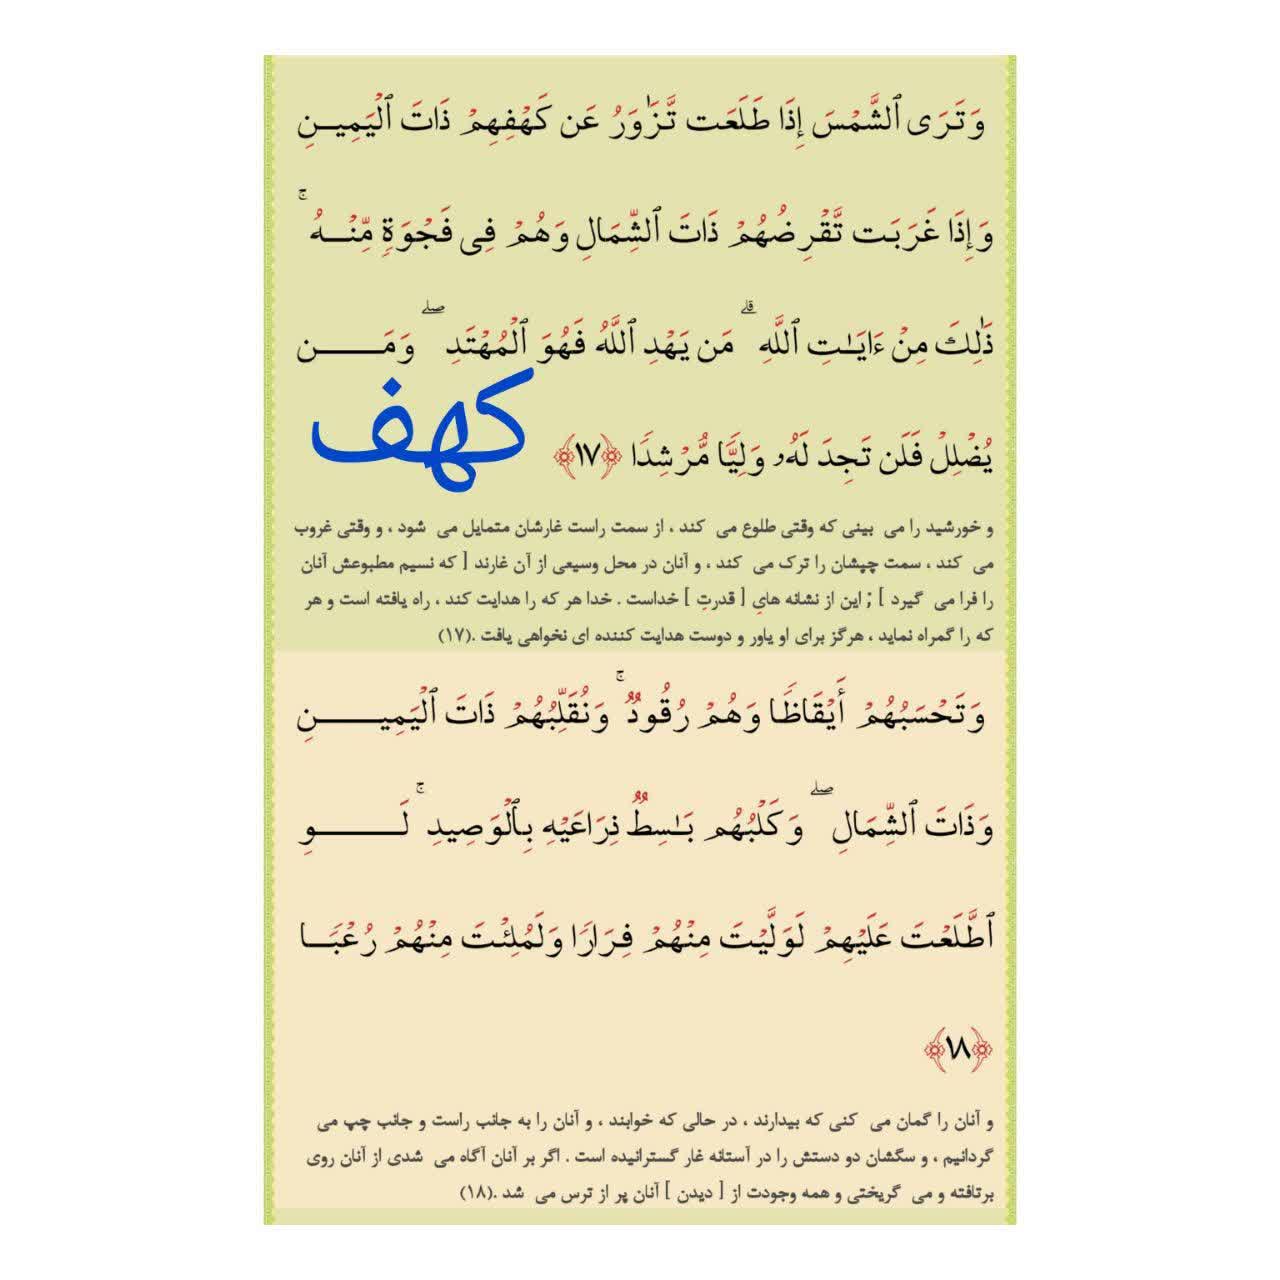 وَتَرَى ٱلشَّمْسَ إِذَا طَلَعَت تَّزَٰوَرُ عَن كَهْفِهِمْ ذَاتَ ٱلْيَمِيـــنِ
وَإِذَا غَرَبَت تَّقْرِضُهُمْ ذَاتَ ٱلشِّمَالِ وَهُمْ فِى فَجْوَةٍ مِّنْـــهُ ۚ
ذَٰلِكَ مِنْ ءَايَـٰتِ ٱللَّهِ ۗ مَن يَهْدِ ٱللَّهُ فَهُوَ ٱلْمُهْتَدِ ۖ وَمَـــــن
يُضْلِلْ فَلَن تَجِدَ لَهُۥ وَلِيًّا مُّرْشِدًا ﴿١٧﴾
کهف
و خورشید را می بینی که وقتی طلوع می کند ، از سمت راست غارشان متمایل می شود ، و وقتی غروب
می کند ، سمت چپشان را ترک می کند ، و آنان در محل وسیعی از آن غارند [ که نسیم مطبوعش آنان
را فرا می گیرد ] ; این از نشانه هایِ [ قدرتِ ] خداست . خدا هر که را هدایت کند ، راه یافته است و هر
که را گمراه نماید ، هرگز برای او یاور و دوست هدایت کننده ای نخواهی یافت .(١٧)
وَتَحْسَبُهُمْ أَيْقَاظًا وَهُمْ رُقُودٌ ۚ وَنُقَلِّبُهُمْ ذَاتَ ٱلْيَمِيـــــنِ
وَذَاتَ ٱلشِّمَالِ ۖ وَكَلْبُهُم بَـٰسِطٌ ذِرَاعَيْهِ بِٱلْوَصِيدِ ۚ لَـــــوِ
ٱطَّلَعْتَ عَلَيْهِمْ لَوَلَّيْتَ مِنْهُمْ فِرَارًا وَلَمُلِئْتَ مِنْهُمْ رُعْبًـــا
﴿١٨﴾
و آنان را گمان می کنی که بیدارند ، در حالی که خوابند ، و آنان را به جانب راست و جانب چپ می
گردانیم ، و سگشان دو دستش را در آستانه غار گسترانیده است . اگر بر آنان آگاه می شدی از آنان روی
برتافته و می گریختی و همه وجودت از [ دیدن ] آنان پر از ترس می شد .(١٨)